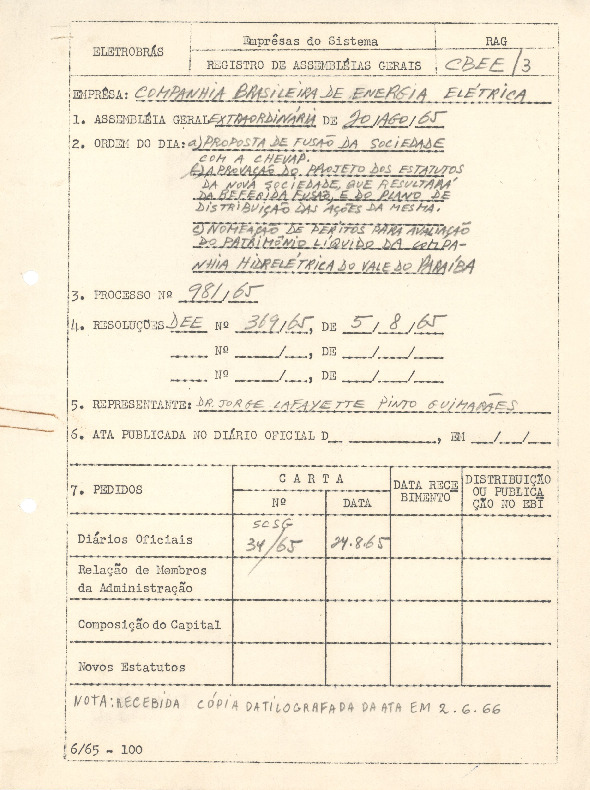 ELETROBRÁS
Emprêsas do Sistema
RAG
REGISTRO DE ASSEMBLÉIAS GERAIS
CBEE/3
EMPRÊSA: COMPANHIA BRASILEIRA DE ENERGIA ELÉTRICA
1. ASSEMBLÉIA GERAL EXTRAORDINÁRIA DE 20/AGO/65
2. ORDEM DO DIA: a) PROPOSTA DE FUSÃO DA SOCIEDADE
COM A CHEVAP.
b) APROVAÇÃO DO PROJETO DOS ESTATUTOS
DA NOVA SOCIEDADE, QUE RESULTARÁ
DA REFERIDA FUSÃO, E DO PLANO DE
DISTRIBUIÇÃO DAS AÇÕES DA MESMA.
c) NOMEAÇÃO DE PERITOS PARA AVALIAÇÃO
DO PATRIMÔNIO LÍQUIDO DA COMPA-
NHIA HIDRELÉTRICA DO VALE DO PARAÍBA
3. PROCESSO Nº 981/65
4. RESOLUÇÕES DEE Nº 369/65, DE 5/8/65
Nº __/__, DE __/__/__
Nº __/__, DE __/__/__
5. REPRESENTANTE: DR. JORGE LAFAYETTE PINTO GUIMARÃES
6. ATA PUBLICADA NO DIÁRIO OFICIAL D__ ________, EM __/__/__
7. PEDIDOS
CARTA
Nº
DATA
DATA RECE
BIMENTO
DISTRIBUIÇÃO
OU PUBLICA
ÇÃO NO EBI
Diários Oficiais
SCSG
34/65
24.8.65
Relação de Membros
da Administração
Composição do Capital
Novos Estatutos
NOTA: RECEBIDA CÓPIA DATILOGRAFADA DA ATA EM 2.6.66
6/65 - 100